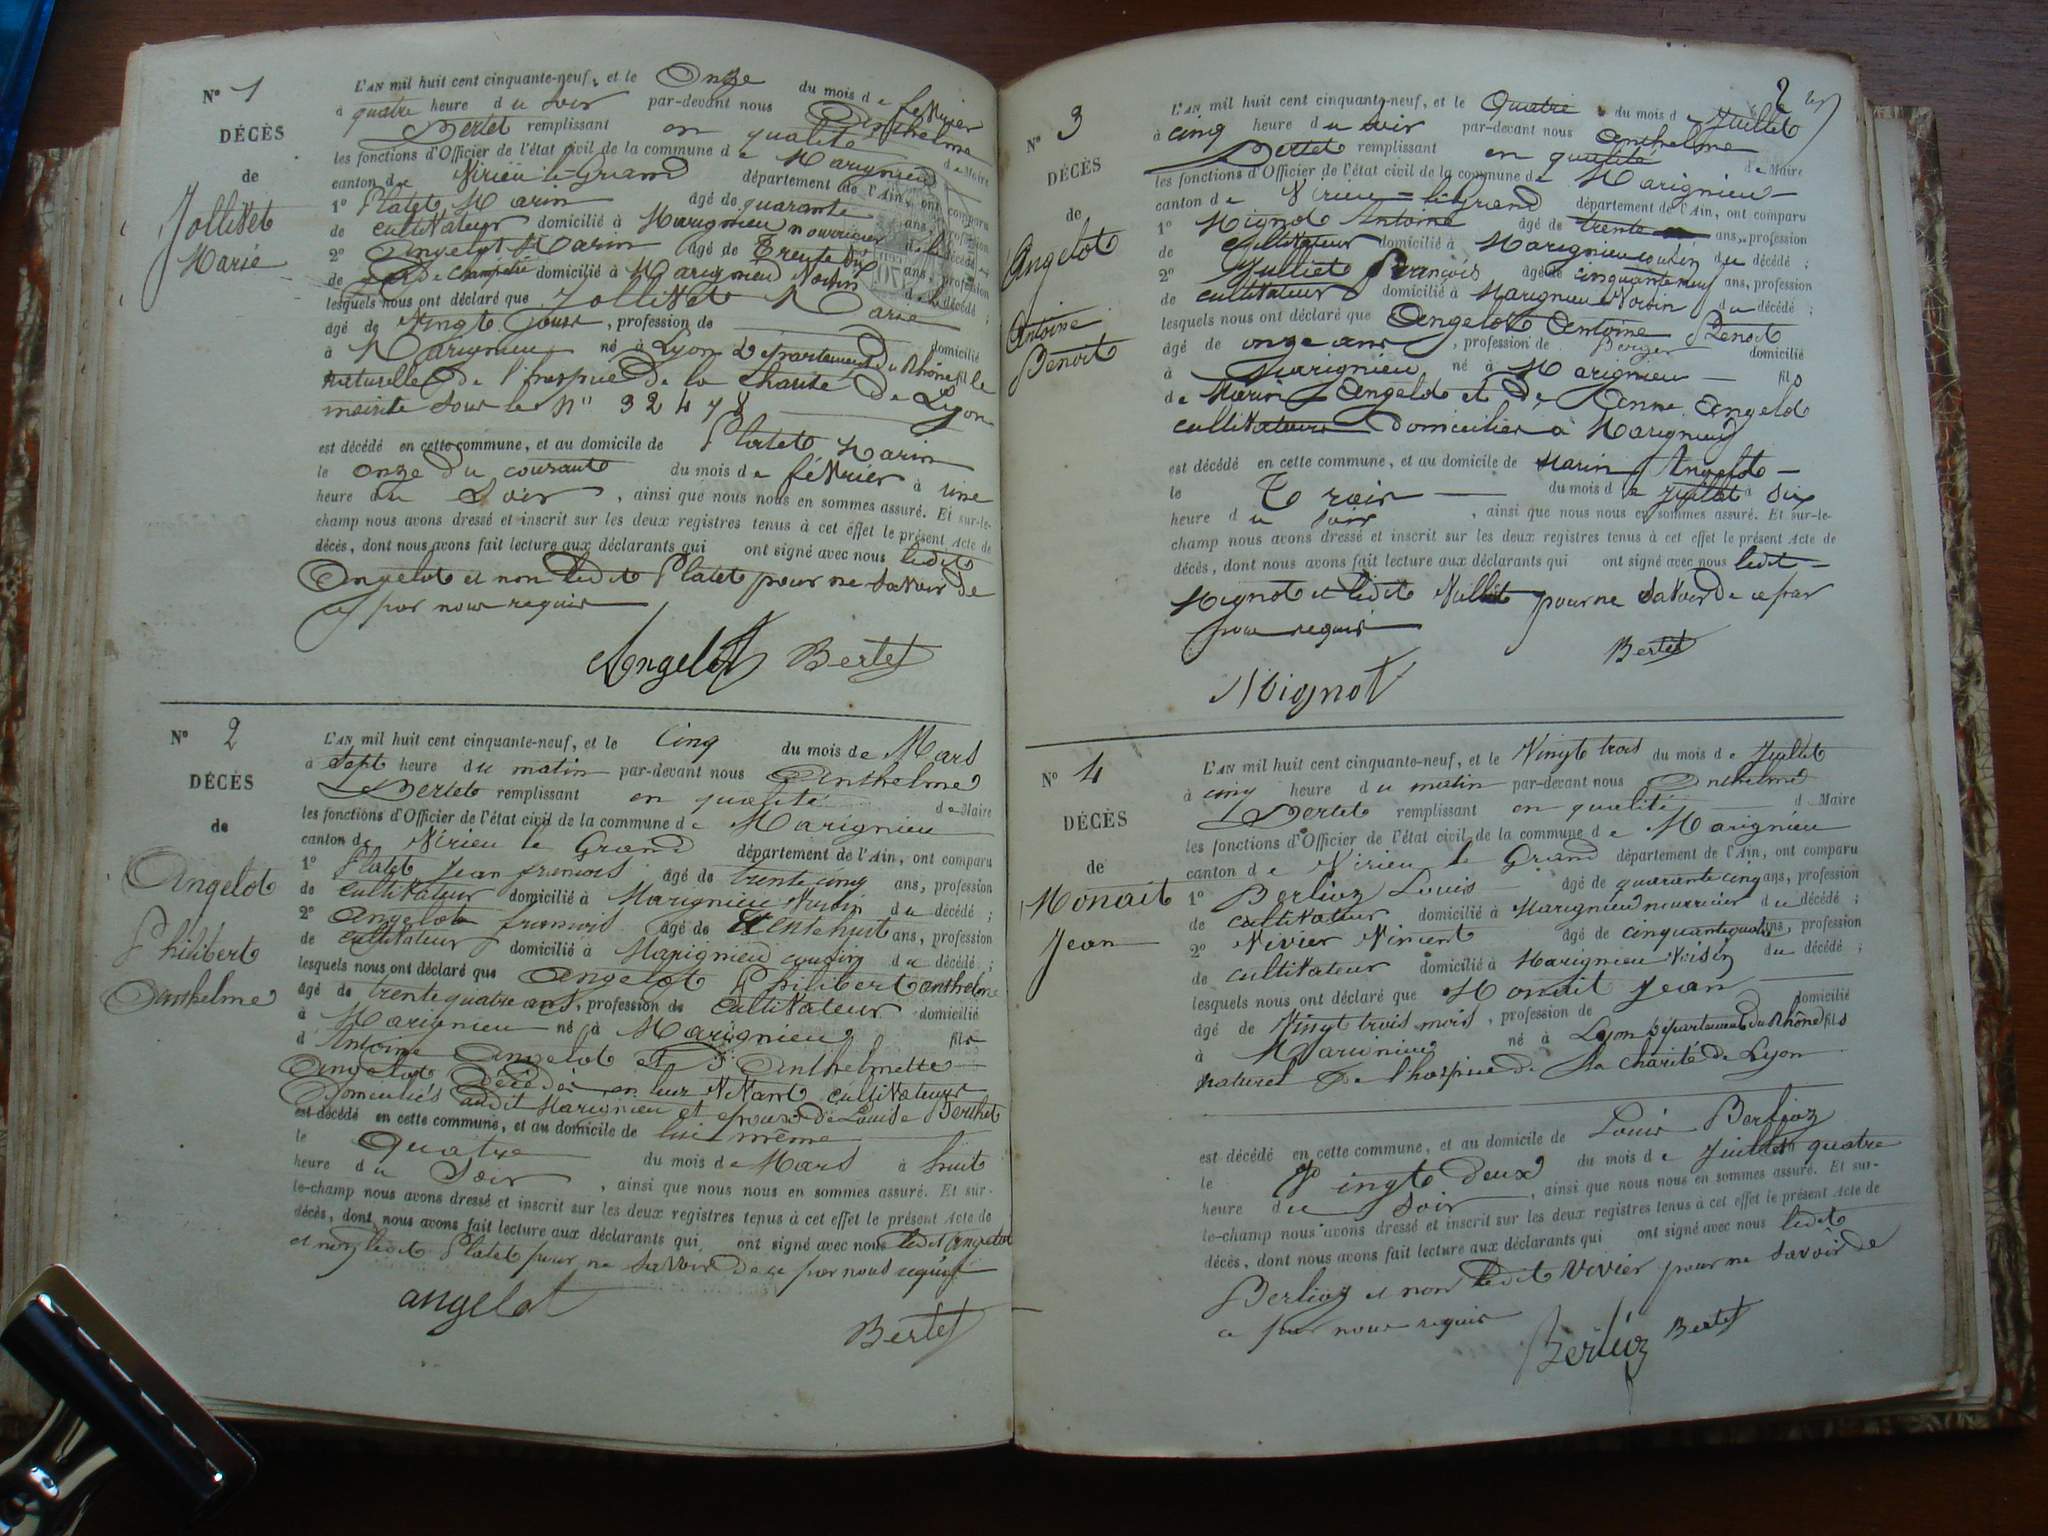 N° 1
DÉCÈS
de
Jollivet
Marie
L'AN mil huit cent cinquante-neuf, et le Onze du mois de février
à quatre heure du soir par-devant nous Anthelme
Bertet remplissant en qualité de Maire
les fonctions d'Officier de l'état civil de la commune de Marignieu
canton de Virieu le Grand département de l'Ain, ont comparu
1° Platet Marin âgé de quarante ans, profession
de cultivateur domicilié à Marignieu nourricier de la décédée
2° Angelot Marin âgé de trente six ans, profession
de garde champetre domicilié à Marignieu Voisin de la décédé ;
lesquels nous ont déclaré que Jollivet Marie
âgé de Vingt Jours, profession de domicilié
à Marignieu né à Lyon Departement du Rhône fille
naturelle de l'hospice de la Charité de Lyon
inscrite sous le N° 32478
est décédé en cette commune, et au domicile de Platet Marin
le onze du courant du mois de février à une
heure du Soir, ainsi que nous nous en sommes assuré. Et sur-le-
champ nous avons dressé et inscrit sur les deux registres tenus à cet effet le présent Acte de
décès, dont nous avons fait lecture aux déclarants qui ont signé avec nous ledit
Angelot et non ledit Platet pour ne savoir de
ce par nous requis
Angelot Bertet
N° 2
DÉCÈS
de
Angelot
Philibert
Anthelme
L'AN mil huit cent cinquante-neuf, et le Cinq du mois de Mars
à sept heure du matin par-devant nous Anthelme
Bertet remplissant en qualité de Maire
les fonctions d'Officier de l'état civil de la commune de Marignieu
canton de Virieu le Grand département de l'Ain, ont comparu
1° Platet Jean francois âgé de trente cinq ans, profession
de cultivateur domicilié à Marignieu Voisin du décédé ;
2° Angelot francois âgé de trente huit ans, profession
de cultivateur domicilié à Marignieu cousin du décédé ;
lesquels nous ont déclaré que Angelot Philibert anthelme
âgé de trente quatre ans, profession de cultivateur domicilié
à Marignieu né à Marignieu fils
d'Antoine Angelot et d'Anthelmette
Angelot décédés en leur Vivant cultivateurs
Domiciliés audit Marignieu et epoux de Louise Berthet
est décédé en cette commune, et au domicile de lui même
le quatre du mois de Mars à huit
heure du Soir, ainsi que nous nous en sommes assuré. Et sur-
le-champ nous avons dressé et inscrit sur les deux registres tenus à cet effet le présent Acte de
décès, dont nous avons fait lecture aux déclarants qui ont signé avec nous ledit Angelot
et non ledit Platet pour ne savoir de ce par nous requis
angelot
Bertet
2
N° 3
DÉCÈS
de
Angelot
Antoine
Benoit
L'AN mil huit cent cinquante-neuf, et le Quatre du mois de Juillet
à cinq heure du soir par-devant nous Anthelme
Bertet remplissant en qualité de Maire
les fonctions d'Officier de l'état civil de la commune de Marignieu
canton de Virieu = le Grand département de l'Ain, ont comparu
1° Mignot Antoine âgé de trente ans, profession
de Cultivateur domicilié à Marignieu cousin du décédé ;
2° Julliet François âgé de cinquante neuf ans, profession
de cultivateur domicilié à Marignieu Voisin du décédé ;
lesquels nous ont déclaré que Angelot Antoine Benoit
âgé de onze ans, profession de Berger domicilié
à Marignieu né à Marignieu fils
de Marin Angelot et de Anne Angelot
cultivateurs Domiciliés à Marignieu
est décédé en cette commune, et au domicile de Marin Angelot
le Trois du mois de Juillet à Six
heure du soir, ainsi que nous nous en sommes assuré. Et sur-le-
champ nous avons dressé et inscrit sur les deux registres tenus à cet effet le présent Acte de
décès, dont nous avons fait lecture aux déclarants qui ont signé avec nous ledit
Mignot et ledit pour ne savoir de ce par
nous requis
Bertet
Mignot
N° 4
DÉCÈS
de
Monait
Jean
L'AN mil huit cent cinquante-neuf, et le Vingt trois du mois de Juillet
à cinq heure du matin par-devant nous Anthelme
Bertet remplissant en qualité d Maire
les fonctions d'Officier de l'état civil de la commune de Marignieu
canton de Virieu le Grand département de l'Ain, ont comparu
1° Berlioz Louis âgé de quarante cinq ans, profession
de cultivateur domicilié à Marignieu nourricier du décédé ;
2° Vivier Vincent âgé de cinquante quatre ans, profession
de cultivateur domicilié à Marignieu Voisin du décédé ;
lesquels nous ont déclaré que Monait Jean
âgé de Vingt trois mois, profession de domicilié
à Marignieu né à Lyon Département du Rhône fils
naturel de l'hospice de la Charité de Lyon
est décédé en cette commune, et au domicile de Louis Berlioz
le Vingt deux du mois de Juillet quatre
heure du Soir, ainsi que nous nous en sommes assuré. Et sur-
le-champ nous avons dressé et inscrit sur les deux registres tenus à cet effet le présent Acte de
décès, dont nous avons fait lecture aux déclarants qui ont signé avec nous ledit
Berlioz et non ledit Vivier pour ne savoir de
ce par nous requis
Berlioz Bertet